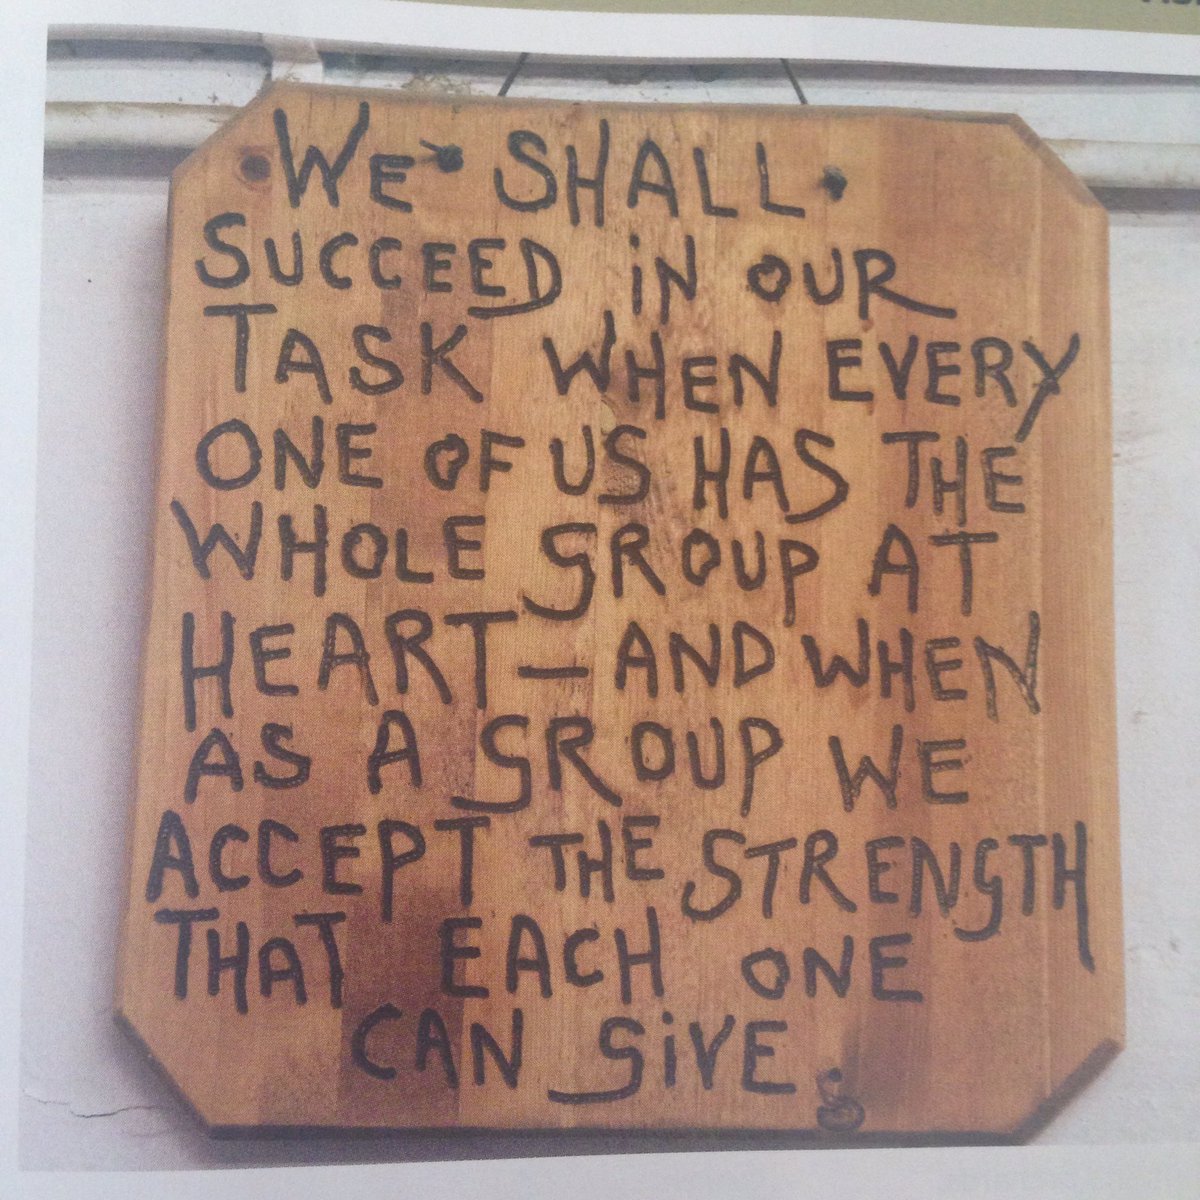 WE SHALL
SUCCEED iN OUR
TASK WHEN EVERY
ONE OF US HAS THE
WHOLE GROUP AT
HEART — AND WHEN
AS A GROUP WE
ACCEPT THE STRENGTH
THAT EACH ONE
CAN GiVE.